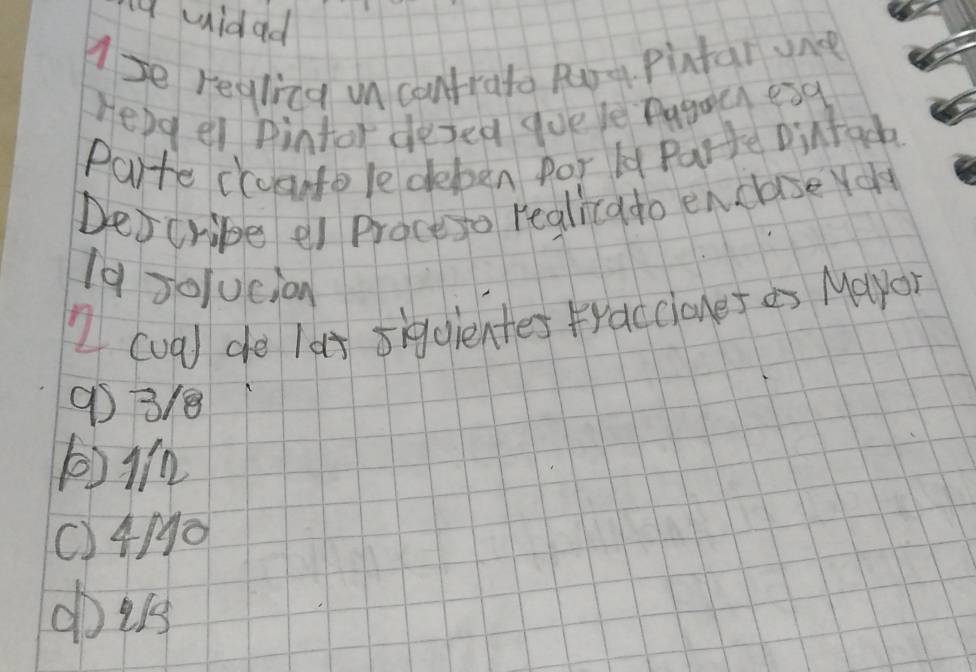 unidad
1 Se realiza un contrato Para. Pintar una
reja el Pintor desea que le Paguen esa
Parte cuanto le deben por la Parte Pintada.
Describe el Proceso realizado en clase y da
la solucion
2 Cual de las siguientes Fracciones es Mayor
a) 3/8
b) 1/2
c) 4/10
d)